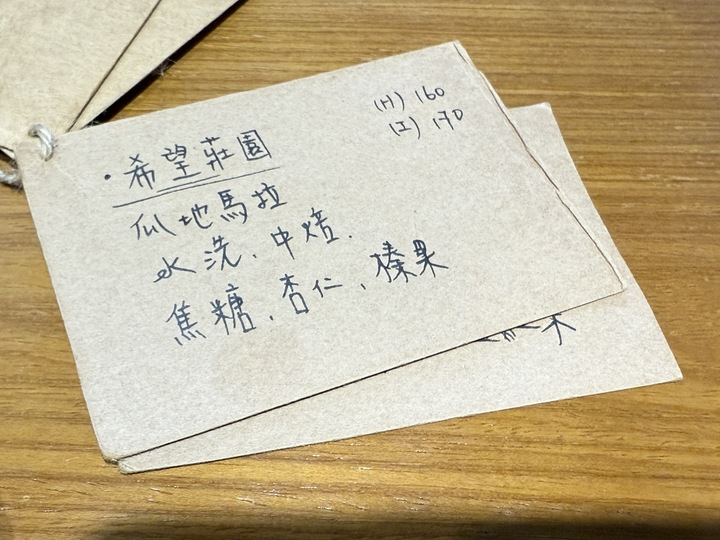 (H) 160
(I) 170
·希望莊園
瓜地馬拉
水洗、中焙.
焦糖、杏仁、榛果